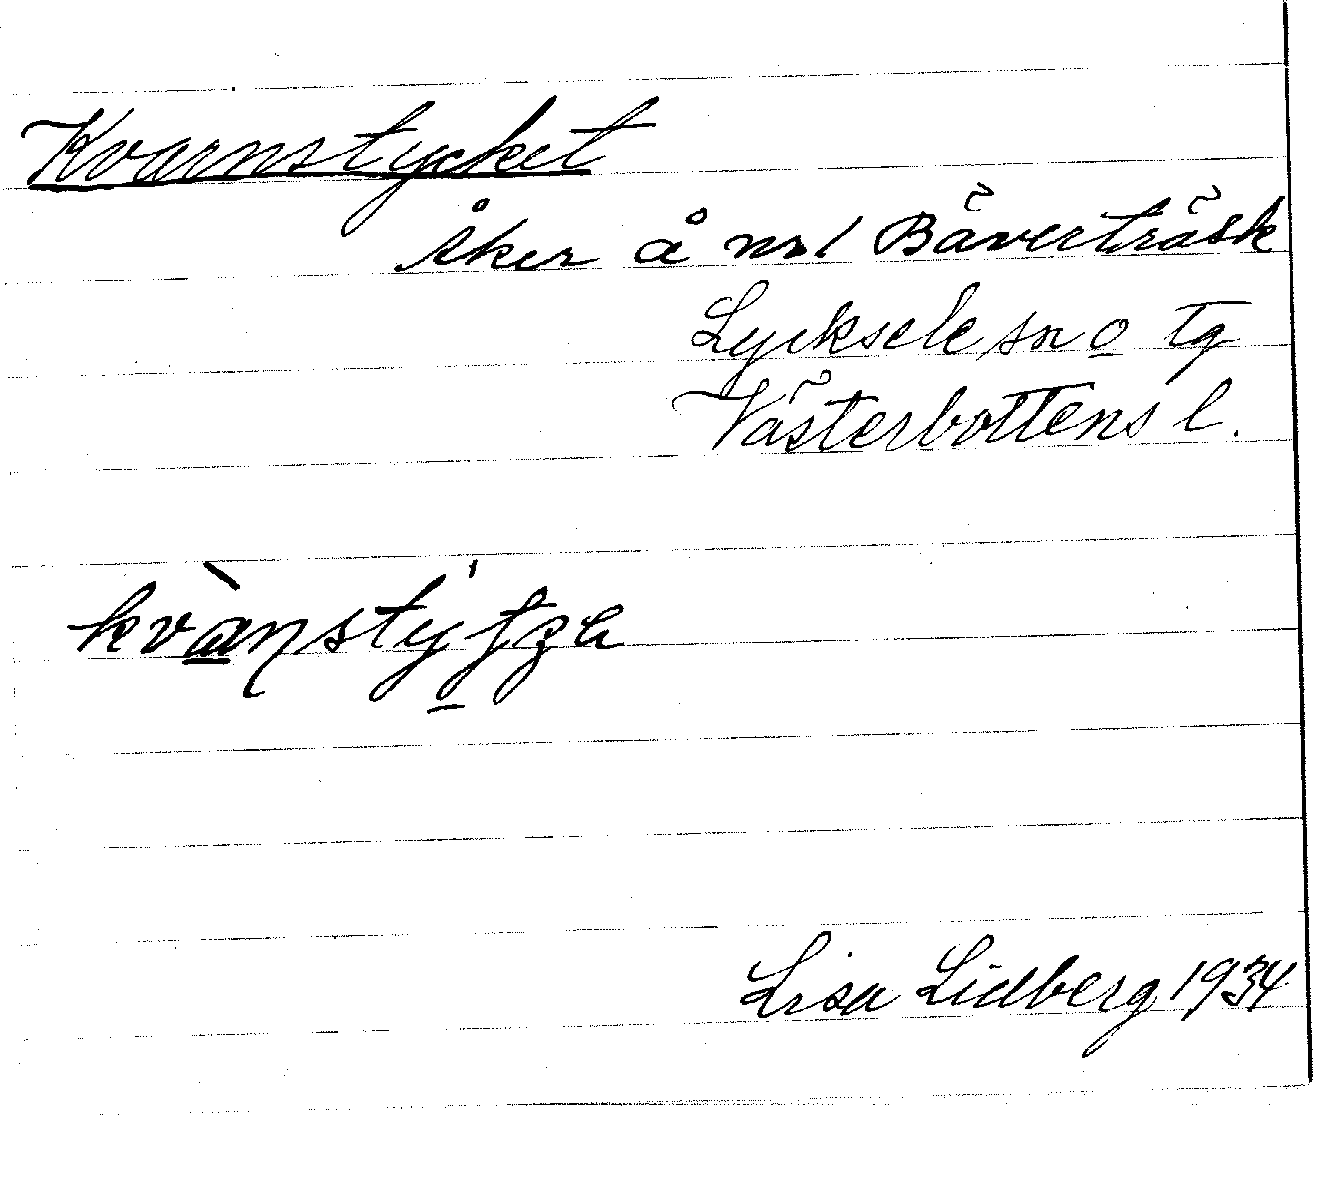 Kvarnstycket
åker å nr 1 Bäverträsk
Lycksele sn o tg
Västerbottens l.
Lisa Lidberg 1934